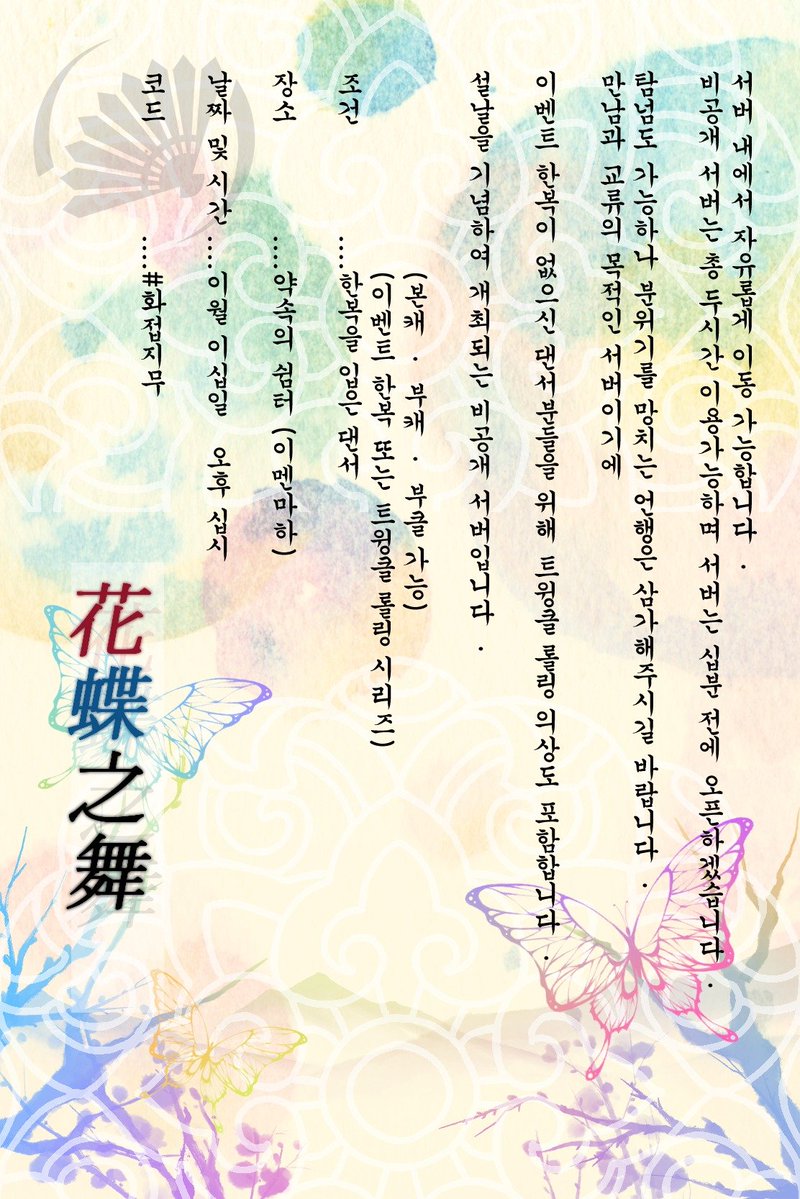 花蝶之舞
코드 ……#화접지무
날짜 및 시간 ……이월 이십일 오후 십시
장소 ……약속의 쉼터 (이멘마하)
조건 ……한복을 입은 댄서
(이벤트 한복 또는 트윙클 롤링 시리즈)
(본캐 . 부캐 . 부클 가능)
설날을 기념하여 개최되는 비공개 서버입니다 .
이벤트 한복이 없으신 댄서분들을 위해 트윙클 롤링 의상도 포함합니다 .
만남과 교류의 목적인 서버이기에
탐넘도 가능하나 분위기를 망치는 언행은 삼가해주시길 바랍니다 .
비공개 서버는 총 두시간 이용가능하며 서버는 십분 전에 오픈하겠습니다 .
서버 내에서 자유롭게 이동 가능합니다 .